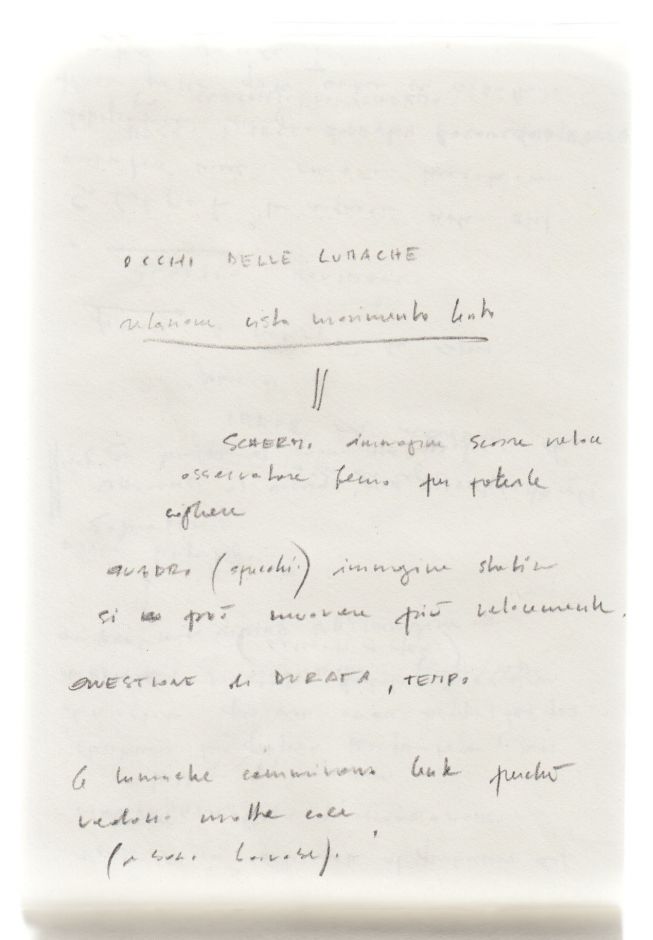 OCCHI DELLE LUMACHE
relazione vista movimento lento
SCHERMI immagine scorre veloce
osservatore fermo per poterle
cogliere
QUADRO (specchi) immagine statica
si può muovere più velocemente.
QUESTIONE di DURATA, TEMPO
le lumache camminano lente perché
vedono molte cose
(e sono